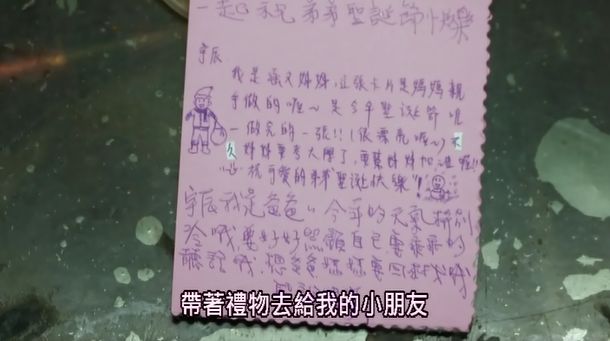 一起祝弟弟聖誕節快樂
宇辰
我是涵文姊姊,這張卡片是媽媽親
手做的喔~是今年聖誕節唯
一做完的一張!!(很漂亮喔~)不
久姊姊要考大學了,要幫姊姊加油喔!!
祝可愛的弟弟聖誕快樂"!
宇辰我是爸爸,,今年的天氣特別
冷哦,要好好照顧自己要乖乖的
聽話哦,想爸爸媽媽要回來哦
帶著禮物去給我的小朋友